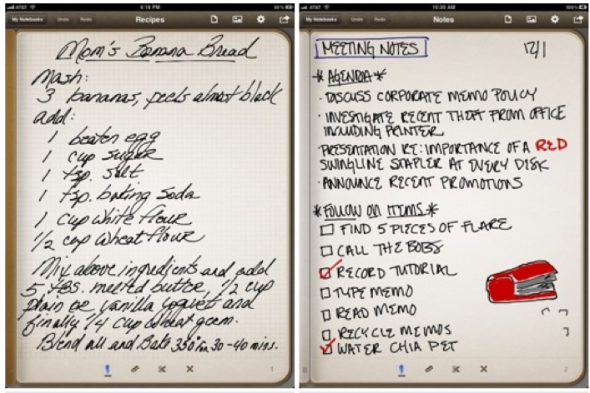 AT&T
6:18 PM
My Notebooks
Undo
Redo
Recipes
Mom's Banana Bread
Mash:
3 bananas, peels almost black
add:
1 beaten egg
1 cup sugar
1 tsp. salt
1 tsp. baking soda
1 cup white flour
1/2 cup wheat flour
Mix above ingredients and add
5 tbs. melted butter, 1/2 cup
plain or vanilla yogurt and
finally 1/4 cup wheat germ.
Blend all and Bake 350° for 30-40 mins.
1
AT&T
10:30 AM
100%
My Notebooks
Undo
Redo
Notes
MEETING NOTES
12/1
* AGENDA *
· DISCUSS CORPORATE MEMO POLICY
· INVESTIGATE RECENT THEFT FROM OFFICE
INCLUDING PRINTER
· PRESENTATION RE: IMPORTANCE OF A RED
SWINGLINE STAPLER AT EVERY DESK
· ANNOUNCE RECENT PROMOTIONS
* FOLLOW ON ITEMS *
FIND 5 PIECES OF FLARE
CALL THE BOBS
RECORD TUTORIAL
TYPE MEMO
READ MEMO
RECYCLE MEMOS
WATER CHIA PET
2